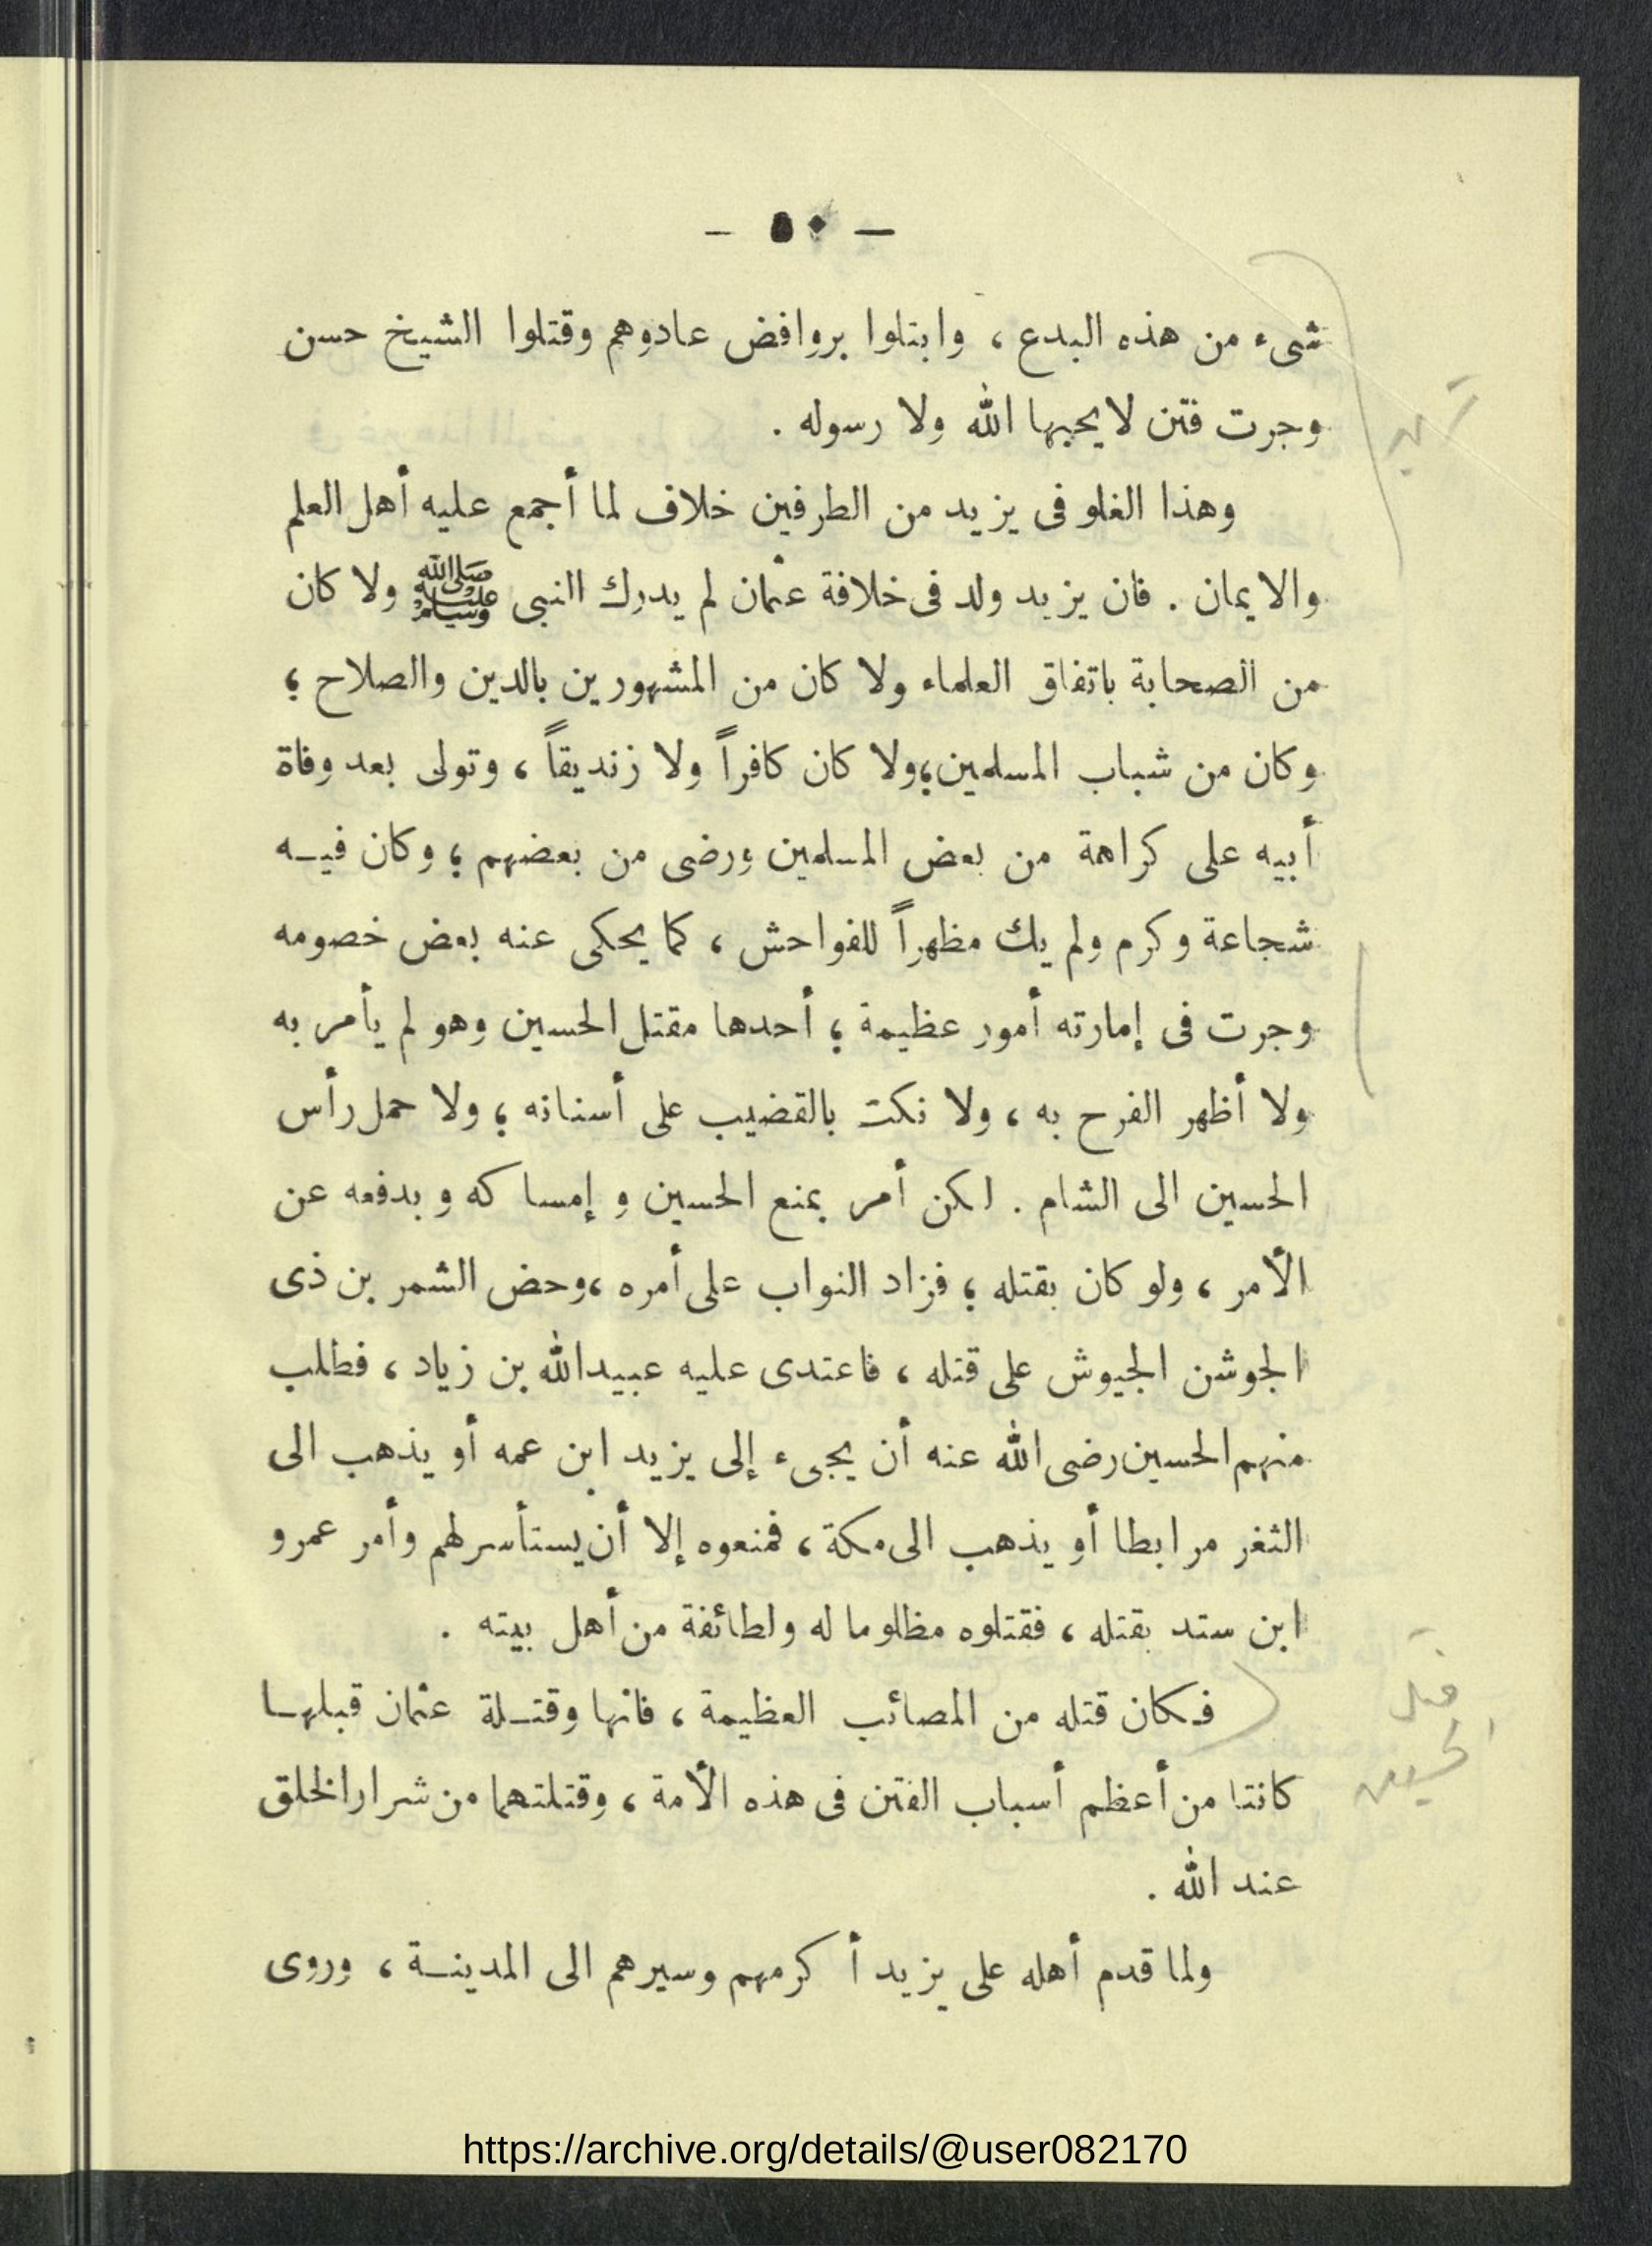 — ٥٠ —
شىء من هذه البدع ، وابتلوا بروافض عادوهم وقتلوا الشيخ حسن
وجرت فتن لا يحبها الله ولا رسوله .
وهذا الغلو فى يزيد من الطرفين خلاف لما أجمع عليه أهل العلم
والايمان . فان يزيد ولد فى خلافة عثمان لم يدرك النبى ﷺ ولا كان
من الصحابة باتفاق العلماء ولا كان من المشهورين بالدين والصلاح ؛
وكان من شباب المسلمين ؛ ولا كان كافراً ولا زنديقاً ، وتولى بعد وفاة
أبيه على كراهة من بعض المسلمين ورضى من بعضهم ؛ وكان فيـه
شجاعة وكرم ولم يك مظهراً للفواحش ، كما يحكى عنه بعض خصومه
وجرت فى إمارته أمور عظيمة ؛ أحدها مقتل الحسين وهو لم يأمر به
ولا أظهر الفرح به ، ولا نكت بالقضيب على أسنانه ؛ ولا حمل رأس
الحسين الى الشام . لكن أمر بمنع الحسين و إمساكه و بدفعه عن
الأمر ، ولو كان بقتله ؛ فزاد النواب على أمره ، وحض الشمر بن ذى
الجوشن الجيوش على قتله ، فاعتدى عليه عبيد الله بن زياد ، فطلب
منهم الحسين رضى الله عنه أن يجىء إلى يزيد ابن عمه أو يذهب الى
الثغر مرابطا أو يذهب الى مكة ، فمنعوه إلا أن يستأسر لهم وأمر عمرو
ابن ستد بقتله ، فقتلوه مظلوما له ولطائفة من أهل بيته .
فـكان قتله من المصائب العظيمة ، فانها وقتـلة عثمان قبلهـا
كانتا من أعظم أسباب الفتن فى هذه الأمة ، وقتلتهما من شرار الخلق
عند الله .
ولما قدم أهله على يزيد أكرمهم وسيرهم الى المدينـة ، وروى
قتل
الحسين
https://archive.org/details/@user082170